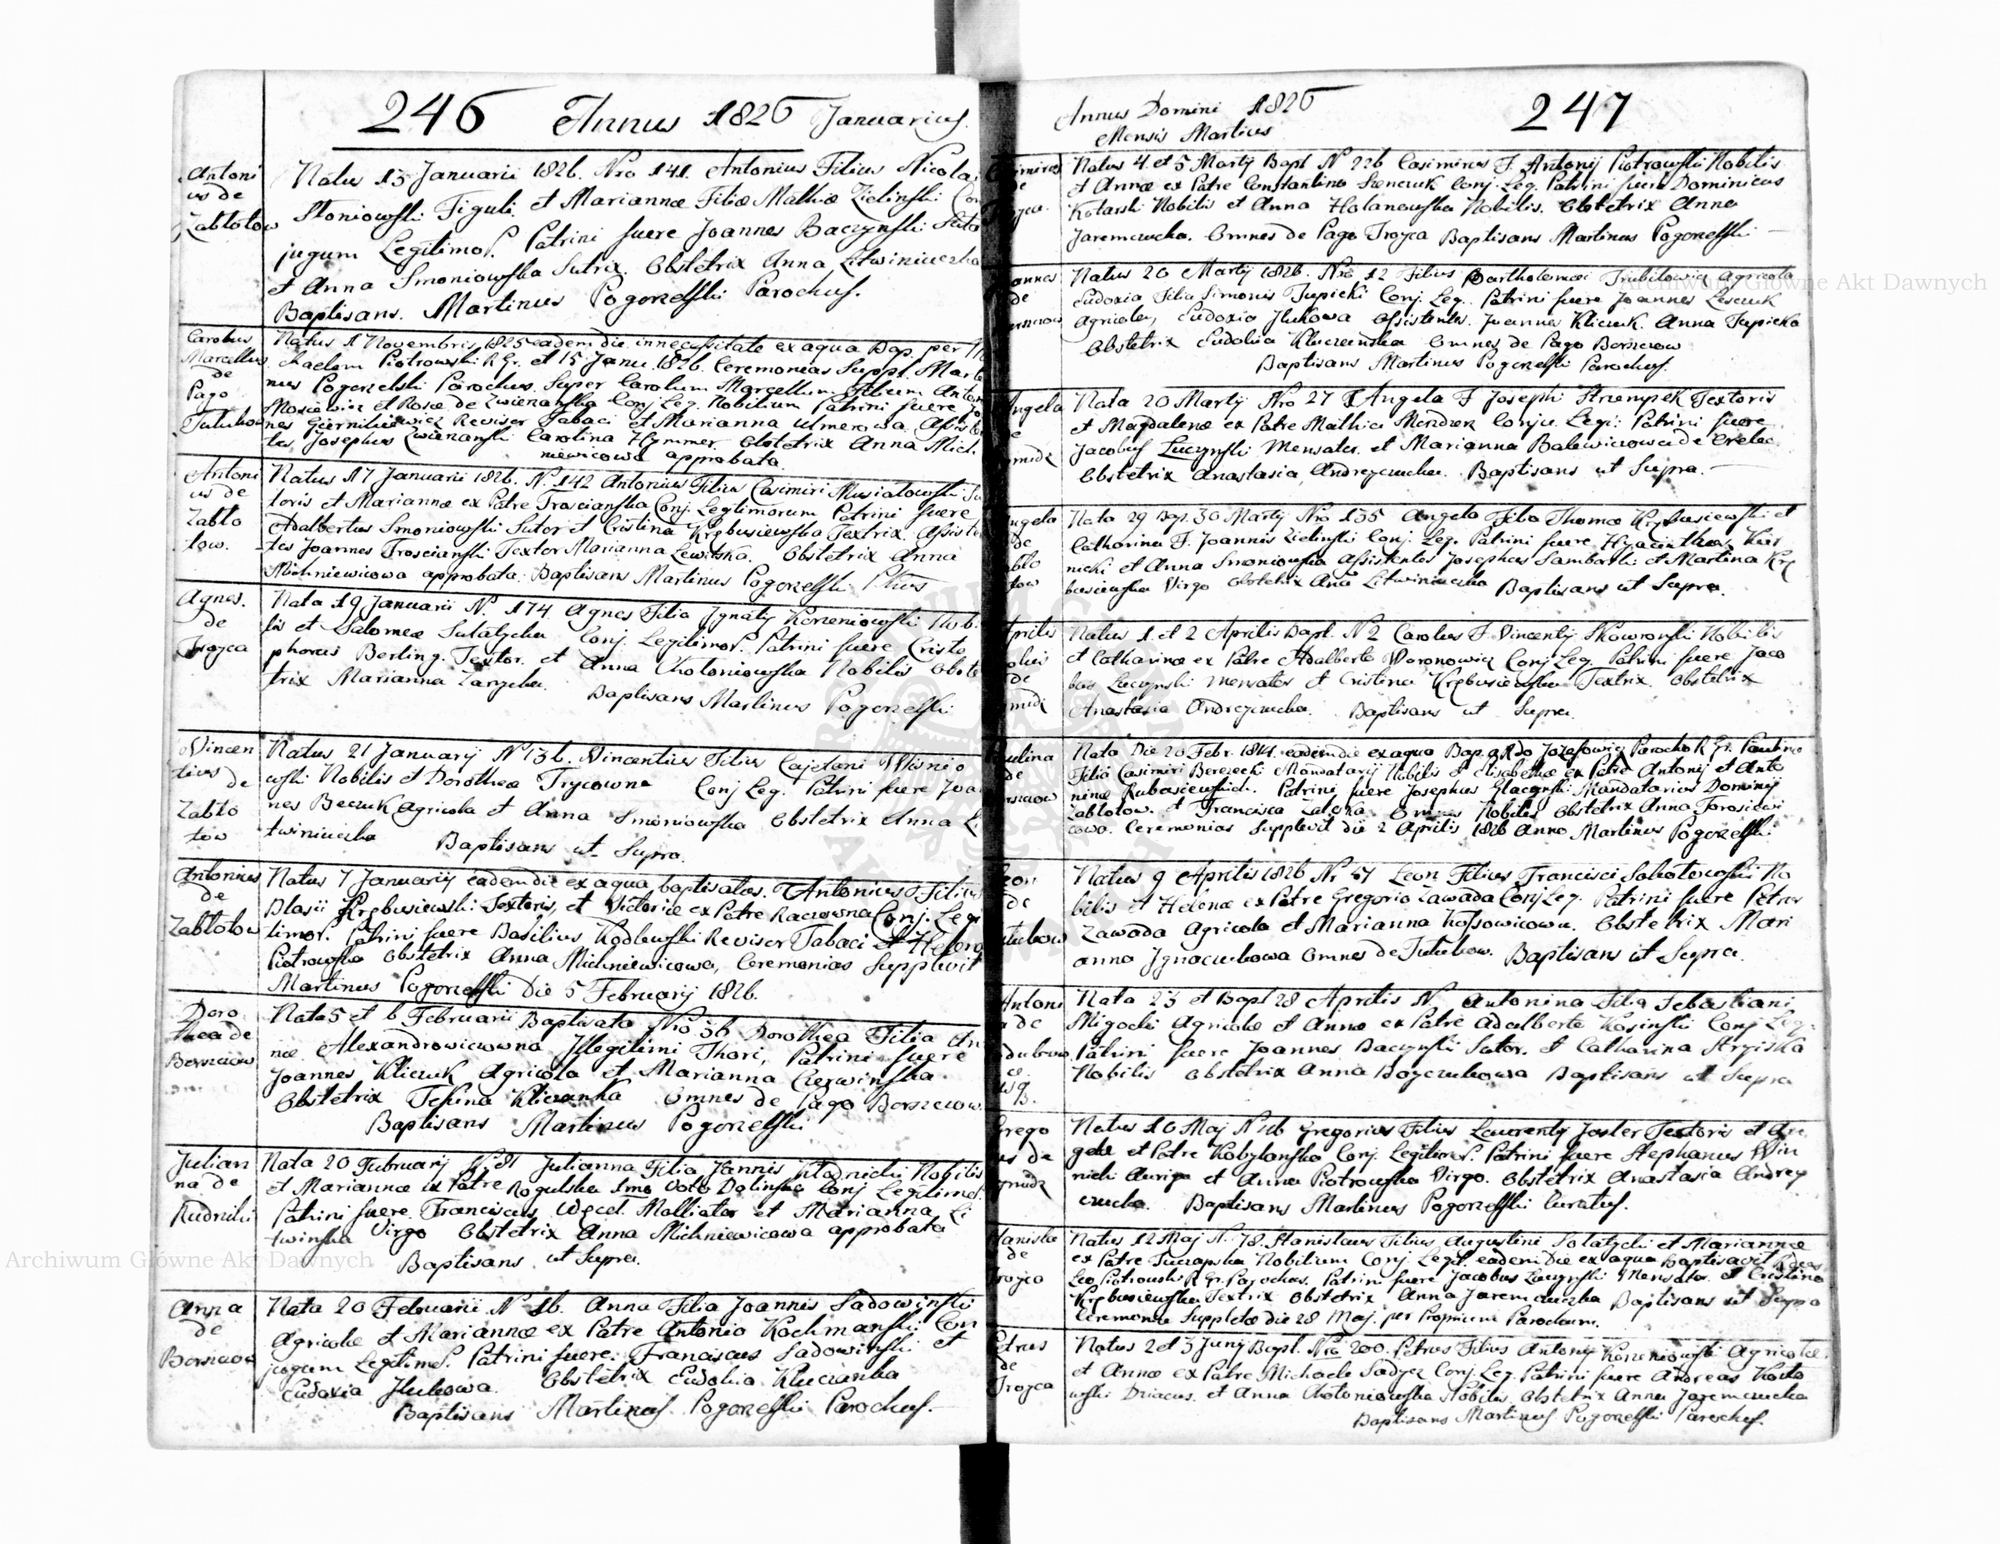 246 Annus 1826 Januarius
Antoni
us de
Zabłotow
Natus 13 Januarii 1826. Nro 141. Antonius Filius Nicola
Stoniowski Figuli et Mariannæ Filiæ Mathiæ Zielinski Con
jugum Legitimor. Patrini fuere Joannes Baczynski Suto
et Anna Smoniowska Sutrix. Obstetrix Anna Litwiniuczka
Baptisans. Martinus Pogorzelski Parochus.
Carolus
Marcellus
de
Pago
Tułukow
Natus 17 Novembris, 1825 eadem die in necessitate ex aqua Bap. per Mi
chaelem Piotrowski R. Gr. et 15 Janu. 1826. Ceremonias Suppl. Marti
nus Pogorzelski Parochus. Super Carolum Marcellum Filium Anton
Mosiewicz et Rosæ de Zwienanska Conj. Leg. Nobilium Patrini fuere Jo
nes Revisor Tabaci et Marianna Ulmerowa. Assist
tes Josephus Carolina Hymmer. Obstetrix Anna Mich
niewicowa approbata.
Antoni
us de
Zabło
tow.
Natus 17 Januarii 1826. N. 142 Antonius Filius Casimiri Musiatowski Su
toris et Mariannæ ex Patre Troscianska Conj. Legitimorum Patrini fuere
Adalbertus Smoniowski Sutor et Cristina Krębusiewska Textrix. Assisten
tes Joannes Troscianski Textor Marianna Lewitska. Obstetrix Anna
Michniewicowa approbata. Baptisans Martinus Pogorzelski
Agnes.
de
Troyca
Nata 19 Januarii N. 174 Agnes Filia Ignatij Korzeniowski Nob.
lis et Salomeæ Sulatycka Conj. Legitimor. Patrini fuere Cristo
phorus Berling. Textor. et Anna Chotoniowska Nobilis Obste
trix Marianna Zarycka. Baptisans Martinus Pogorzelski
Vincen
tius de
Zabło
tow
Natus 21 Januarij N 136. Vincentius Filius Cajetani Wisnio
wski Nobilis et Dorotheæ Trycowna Conj Leg. Patrini fuere Joan
nes Beczuk Agricola et Anna Smoniowska Obstetrix Anna Li
twiniuczka Baptisans ut Supra.
Antonius
de
Zabłotow
Natus 7 Januarij eadem die ex aqua baptisatus. Antonius Filius
Blasii Krębusiewski Textoris, et Victoriæ ex Patre Raczowna Conj. Legi
timor. Patrini fuere Basilius Kodlewski Revisor Tabaci et Helena
Piotrowska Obstetrix Anna Michniewicowa, Ceremonias Supplevit
Martinus Pogorzelski Die 5 Februarij 1826.
Doro
thea de
Borszczow
Nata 5 et 6 Februarii Baptisata Nro 36 Dorothea Filia An
næ Alexandrowiczowna Illegitimi Thori, Patrini fuere
Joannes Kliczuk Agricola et Marianna Czerwinska.
Obstetrix Tekina Kliczanka Omnes de Pago Borszczow.
Baptisans Martinus Pogorzelski
Julian
na de
Rudniki
Nata 20 Februarij N. 81 Julianna Filia Joannis Kłodnicki Nobilis
et Mariannæ ex Patre Rogulska 1mo Voto Dolinska Conj Legitimor.
Patrini fuere. Franciscus Węcel Molliator et Marianna Li
twinska Virgo Obstetrix Anna Michniewicowa approbata
Baptisans ut Supra.
Anna
de
Borszczow
Nata 20 Februarii N 16. Anna Filia Joannis Sadowinski
Agricolæ et Mariannæ ex Patre Antonio Kochmanski Con
jugum Legitimor. Patrini fuere. Franciscus Sadowinski et
Eudoxia Ilukowa. Obstetrix Eudokia Kluczanka
Baptisans Martinus Pogorzelski Parochus.
Annus Domini 1826 247
Mensis Martius
Natus 4 et 5 Martij Bapt N 226 Casimirus F. Antonij Piotrowski Nobilis
et Annæ ex Patre Constantino Szenczuk Conj. Leg. Patrini fuere Dominicus
Kotarski Nobilis et Anna Holanowska Nobilis. Obstetrix Anna
Jaremczucka. Omnes de Pago Troyca Baptisans Martinus Pogorzelski
Natus 20 Martij 1826. Nro 12 Filius Bartholomæi Trubitowicz Agricola
Eudoxia Filia Simonis Tupicki Conj. Leg. Patrini fuere Joannes Lesczuk
Agricola, Eudoxia Ilukowa Assistentes. Joannes Kliczuk. Anna Tupicka
Obstetrix Eudokia Kluczeinska Omnes de Pago Borszczow
Baptisans Martinus Pogorzelski Parochus.
Angela
Nata 20 Martij Nro 27 Angela F Josephi Strzempek Textoris
et Magdalenæ ex Patre Mathia Mendzon Conju. Legi: Patrini fuere
Jacobus Łuczynski Mensator et Marianna Balewiczowa de
Obstetrix Anastasia Andreyczucka. Baptisans ut Supra.
Angela
Nata 29 Bap. 30 Martij Nro 135 Angela Filia Thomæ Krębusiewski et
Catharina F. Joannis Zielinski Conj. Leg. Patrini fuere Hyacinthus Kar
nicki et Anna Smoniowska Assistentes Josephus Samborski et Martina Krę
busiewska Virgo Obstetrix Anna Litwiniuczka Baptisans ut Supra.
Aprilis
Natus 1. et 2 Aprilis Bapt. N 2 Carolus F. Vincentij Skowronski Nobilis
et Catharinæ ex Patre Adalberto Woronowicz Conj Leg. Patrini fuere Jaco
bus Łuczynski Mensator et Cristina Krębusiewska Textrix. Obstetrix
Anastasia Andreyczucka. Baptisans ut Supra.
Paulina
de
Nata Die 20 Febr. 1814. eadem die ex aqua Bap. a Jozefowicz Parocho R. Gr. Paulina
Filia Casimiri Berezecki Mandatarij Nobilis et Elisabethæ ex Patre Antonij et Anto
ninæ Rubasiewski. Patrini fuere Josephus Glaczynski Mandatarius Dominij
Zabłotow. et Francisca Zaleska. Omnes Nobiles Obstetrix Anna Torosiewi
cowa. Ceremonias Supplevit die 2 Aprilis 1826 Anno Martinus Pogorzelski.
Leon
de
Natus 9 Aprilis 1826 Nr 87 Leon Filius Francisci Sokołowski No
bilis et Helenæ ex Patre Gregorio Zawada Conj Leg. Patrini fuere Petrus
Zawada Agricola et Marianna Kossowicowa. Obstetrix Mari
anna Ignaczukowa Omnes de Tułukow. Baptisans ut Supra.
Antoni
a de
Nata 23 et Bapt 28 Aprilis N. Antonina Filia Sebastiani
Migocki Agricolæ et Annæ ex Patre Adalberto Kosinski Conj Leg.
Patrini fuere Joannes Baczynski Sutor. et Catharina Stryiska
Nobilis Obstetrix Anna Boyczukowa Baptisans ut Supra
Grego
us de
Natus 10 Maj N 26 Gregorius Filius Laurentij Joster Textoris et An
gelæ et Patre Kobylanska Conj. Legitimor. Patrini fuere Stephanus Win
nicki Auriga et Anna Piotrowska Virgo. Obstetrix Anastasia Andrey
czucka. Baptisans Martinus Pogorzelski Curatus.
Stanisla
de
Troyca
Natus 12 Maj N. 78. Stanislaus Filius Augustini Solatycki et Mariannæ
ex Patre Tuczapska Nobilium Conj. Legit. eadem die ex aqua Baptisavit
Leo Piotrowski R. Gr. Parochus. Patrini fuere Jacobus Łuczynski Mensator. et Cristina
Krębusiewska Textrix Obstetrix Anna Jaremczuczka Baptisans ut Supra
Ceremoniæ Suppletæ die 28 Maj. per Proprium Parochum.
Petrus
de
Troyca
Natus 2 et 3 Junij Bapt. Nro 200. Petrus Filius Antonij Korzeniowski Agricolæ.
et Annæ ex Patre Michaele Sadycz Conj Leg. Patrini fuere Andreas Kotto
wski Driacus. et Anna Chotoniowska Nobilis Obstetrix Anna Jaremczucka
Baptisans Martinus Pogorzelski Parochus.
Archiwum Główne Akt Dawnych
Archiwum Główne Akt Dawnych